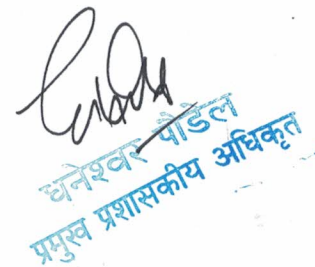 धनेश्वर पौडेल
प्रमुख प्रशासकीय अधिकृत